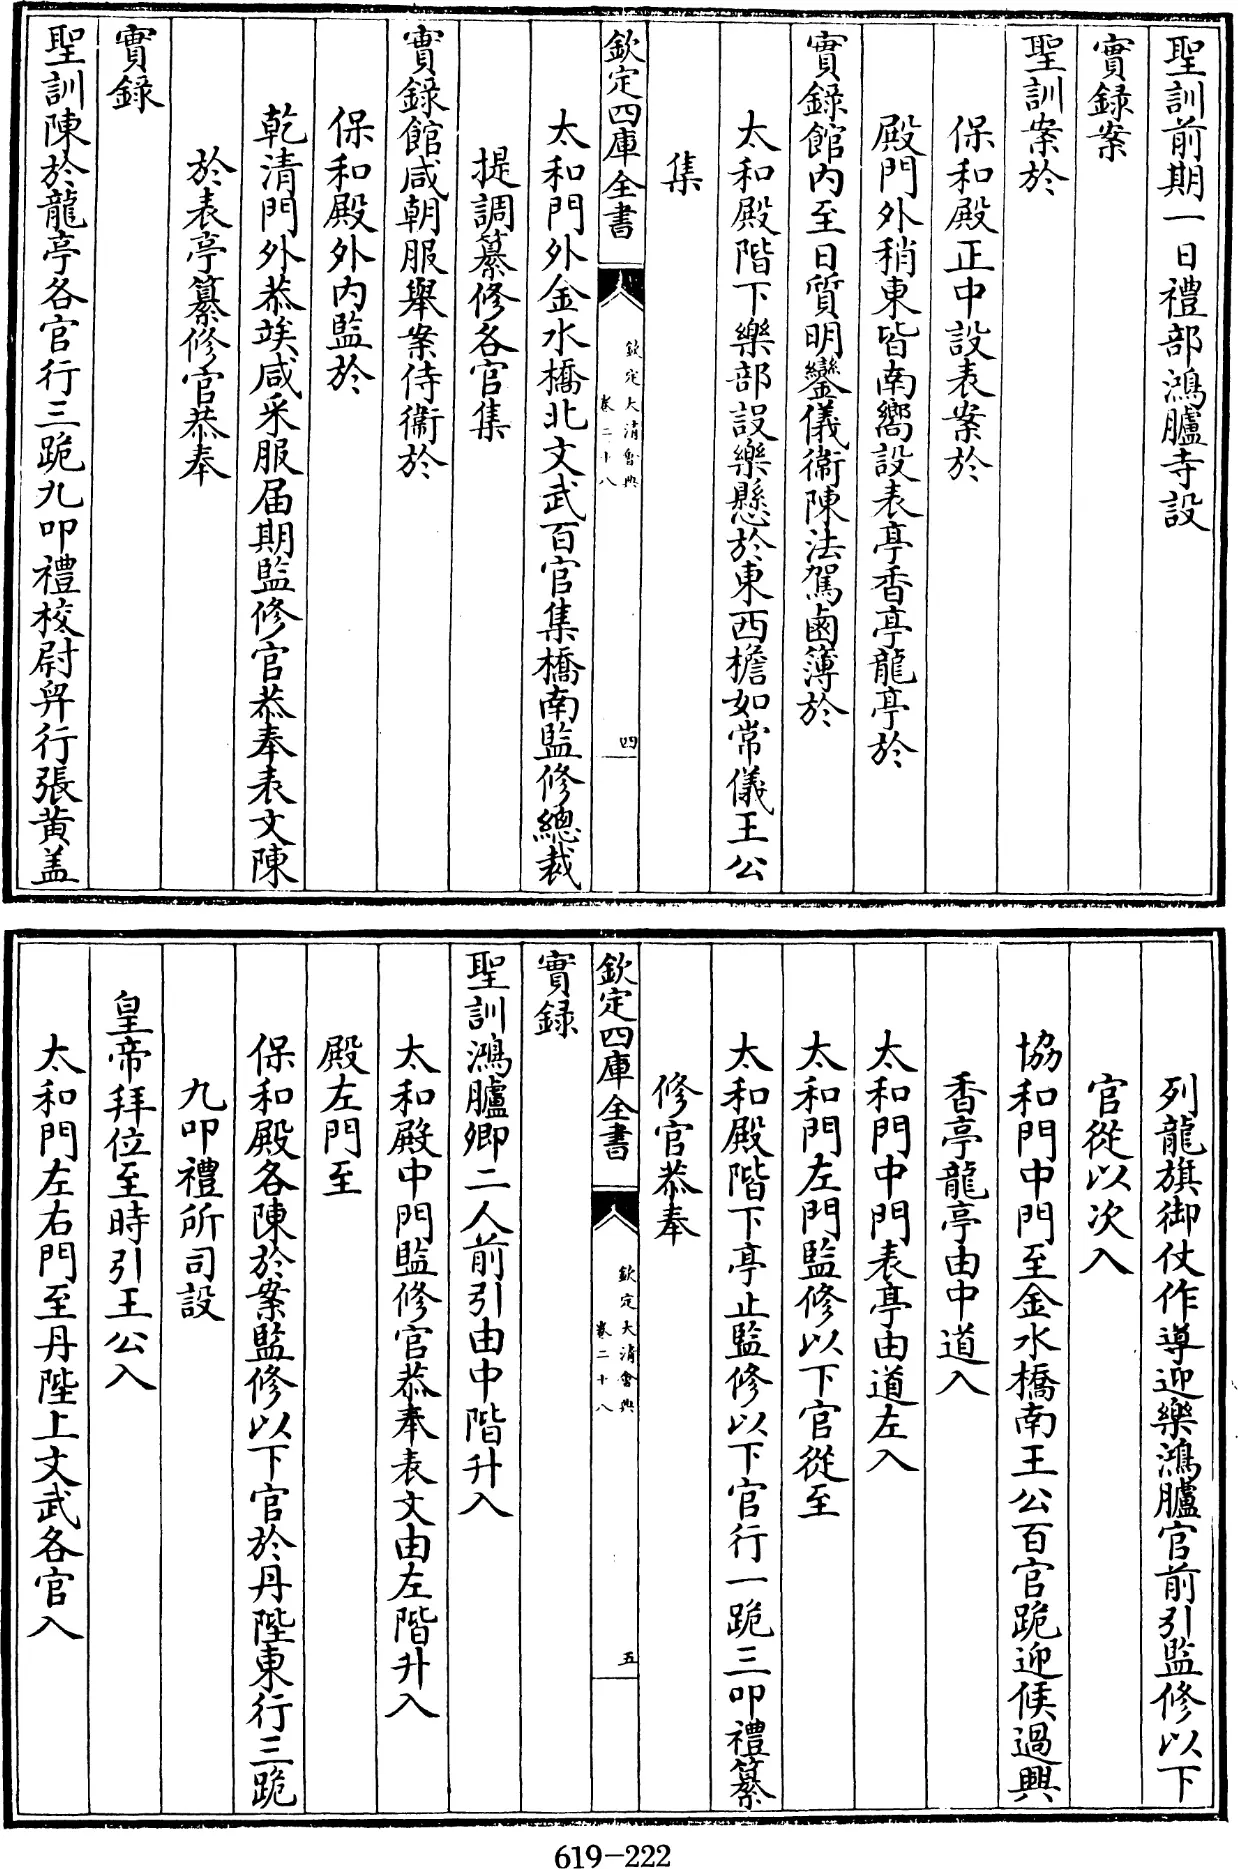 聖訓前期一日禮部鴻臚寺設
實錄案
聖訓案於
保和殿正中設表案於
殿門外稍東皆南嚮設表亭香亭龍亭於
實錄館内至日質明鑾儀衞陳法駕鹵簿於
太和殿階下樂部設樂懸於東西檐如常儀王公
集
欽定四庫全書
欽定大清會典
卷二十八
四
太和門外金水橋北文武百官集橋南監修總裁
提調纂修各官集
實錄館咸朝服舉案侍衞於
保和殿外内監於
乾清門外恭竢咸采服届期監修官恭奉表文陳
於表亭纂修官恭奉
實錄
聖訓陳於龍亭各官行三跪九叩禮校尉舁行張黄盖
列龍旗御仗作導迎樂鴻臚官前引監修以下
官從以次入
協和門中門至金水橋南王公百官跪迎候過興
香亭龍亭由中道入
太和門中門表亭由道左入
太和門左門監修以下官從至
太和殿階下亭止監修以下官行一跪三叩禮纂
修官恭奉
欽定四庫全書
欽定大清會典
卷二十八
五
實錄
聖訓鴻臚卿二人前引由中階升入
太和殿中門監修官恭奉表文由左階升入
殿左門至
保和殿各陳於案監修以下官於丹陛東行三跪
九叩禮所司設
皇帝拜位至時引王公入
太和門左右門至丹陛上文武各官入
619-222